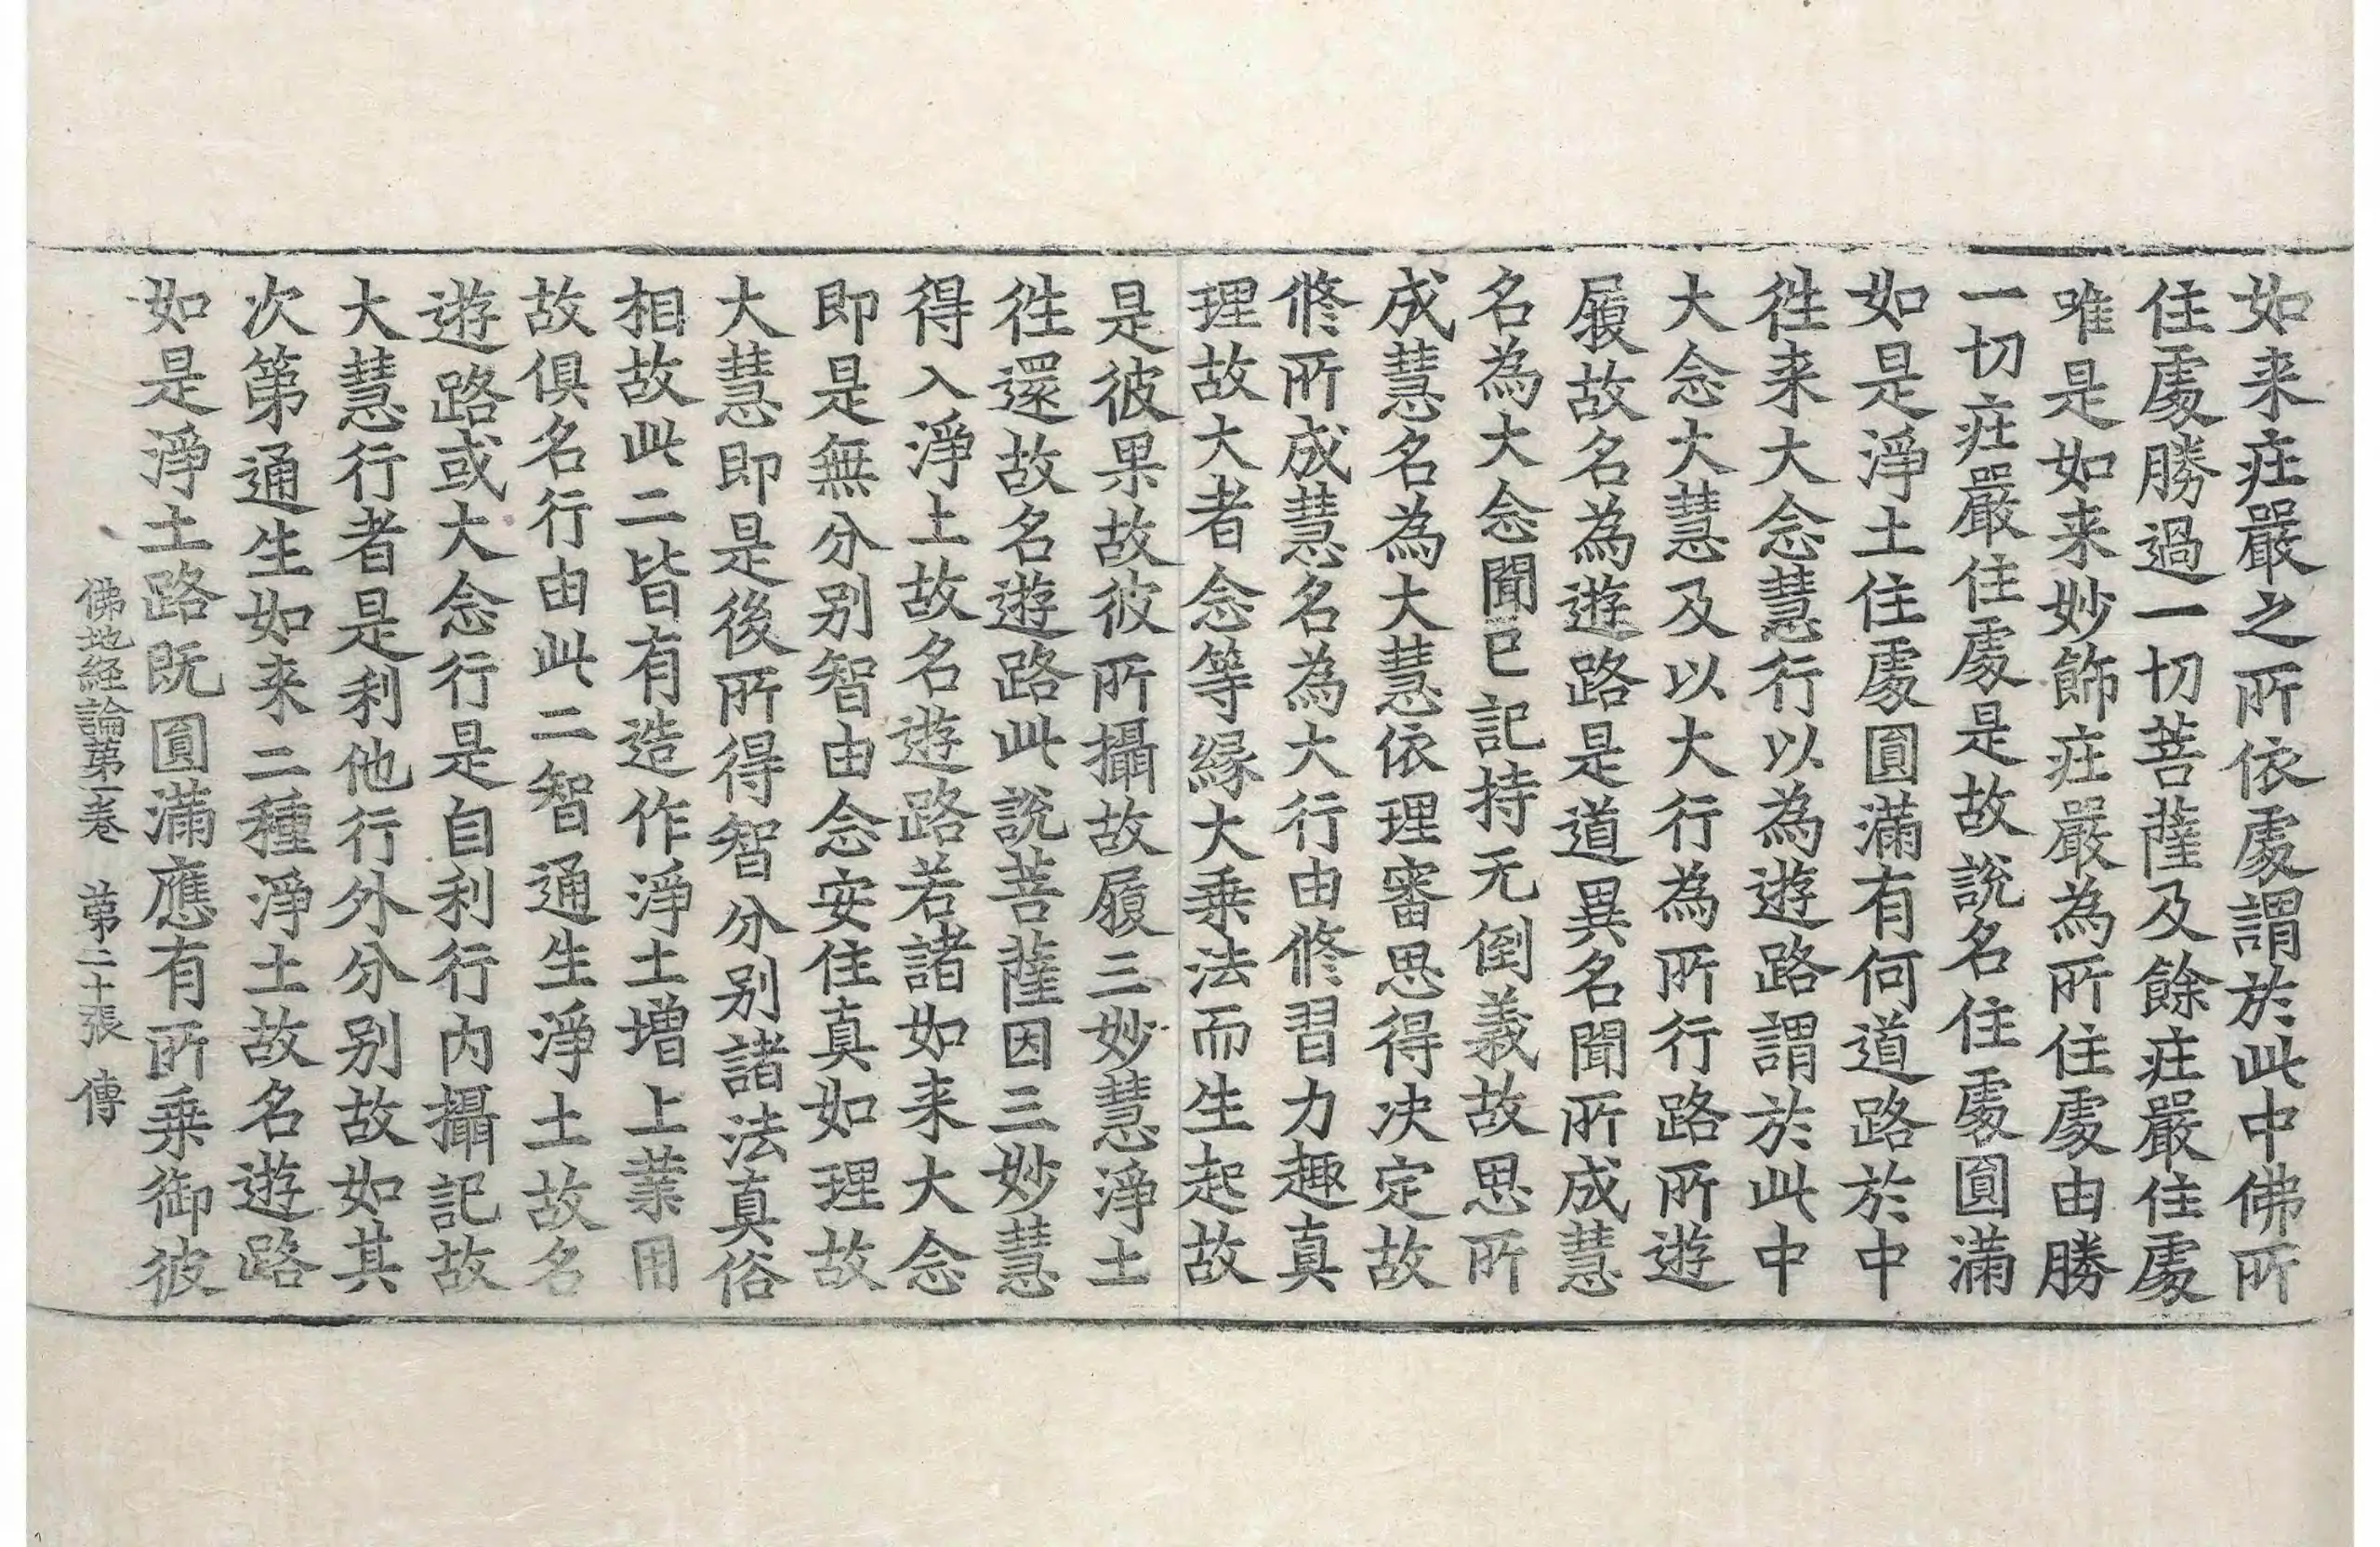 如来㽵嚴之所依處謂於此中佛所
住處勝過一切菩薩及餘㽵嚴住處
唯是如来妙飾㽵嚴為所住處由勝
一切㽵嚴住處是故說名住處圓滿
如是淨土住處圓滿有何道路於中
徃来大念慧行以為遊路謂於此中
大念大慧及以大行為所行路所遊
履故名為遊路是道異名聞所成慧
名為大念聞已記持无倒義故思所
成慧名為大慧依理審思得决定故
修所成慧名為大行由修習力趣真
理故大者念等縁大乗法而生起故
是彼果故彼所攝故履三妙慧淨土
徃還故名遊路此說菩薩因三妙慧
得入淨土故名遊路若諸如来大念
即是無分别智由念安住真如理故
大慧即是後所得智分别諸法真俗
相故此二皆有造作淨土增上業用
故俱名行由此二智通生淨土故名
遊路或大念行是自利行內攝記故
大慧行者是利他行外分别故如其
次第通生如来二種淨土故名遊路
如是淨土路既圓滿應有所乗御彼
佛地経論第一卷 第二十張 傳